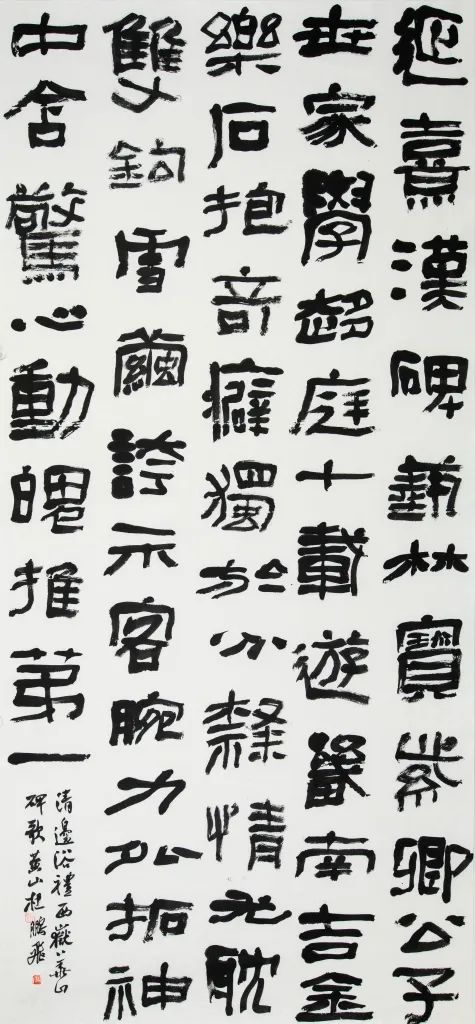 延熹漢碑藝林寶紫卿公子
世家學趨庭十載遊南吉金
樂石抱奇癖獨於分隸情尤耽
雙鉤雪繭誇示客腕力外拓神
中含驚心動魄推第一
清邊浴禮西嶽華山
碑歌黃山杜鵬飛